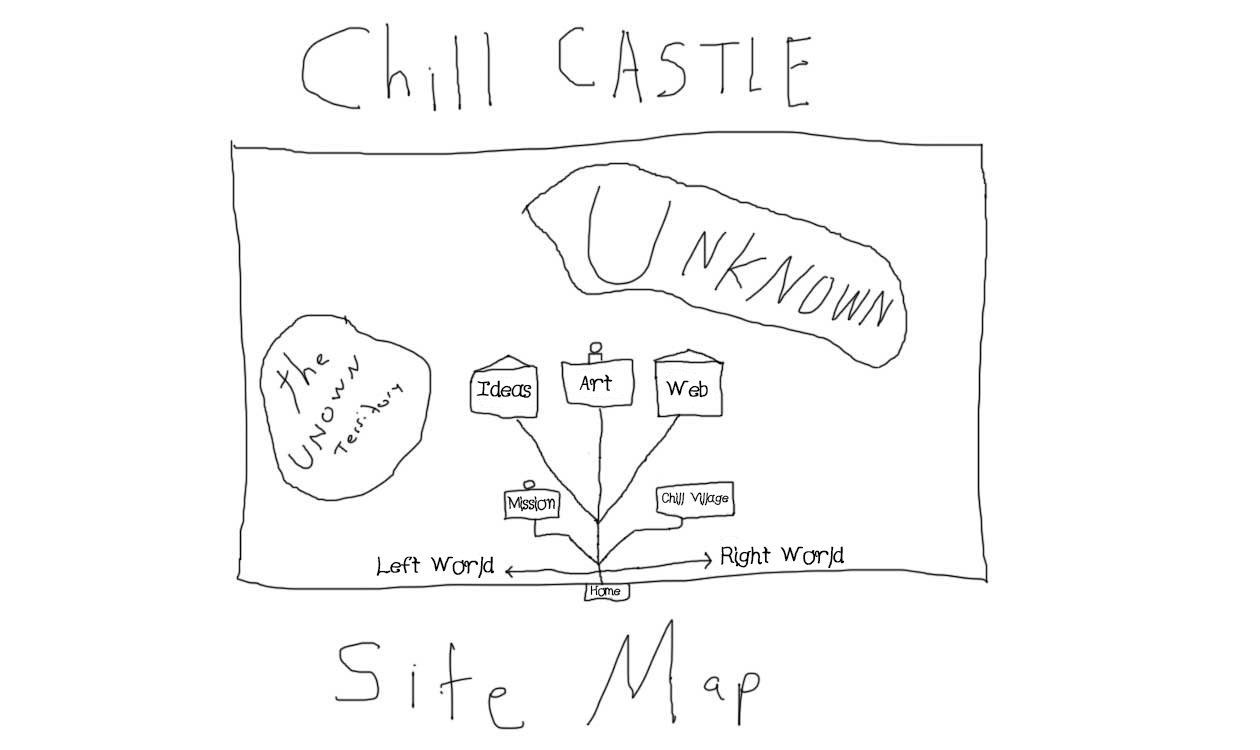 Chill CASTLE
UNKNOWN
the
UNOWN
Territory
Ideas
Art
Web
Mission
Chill Village
Left World
Right World
Home
Site Map